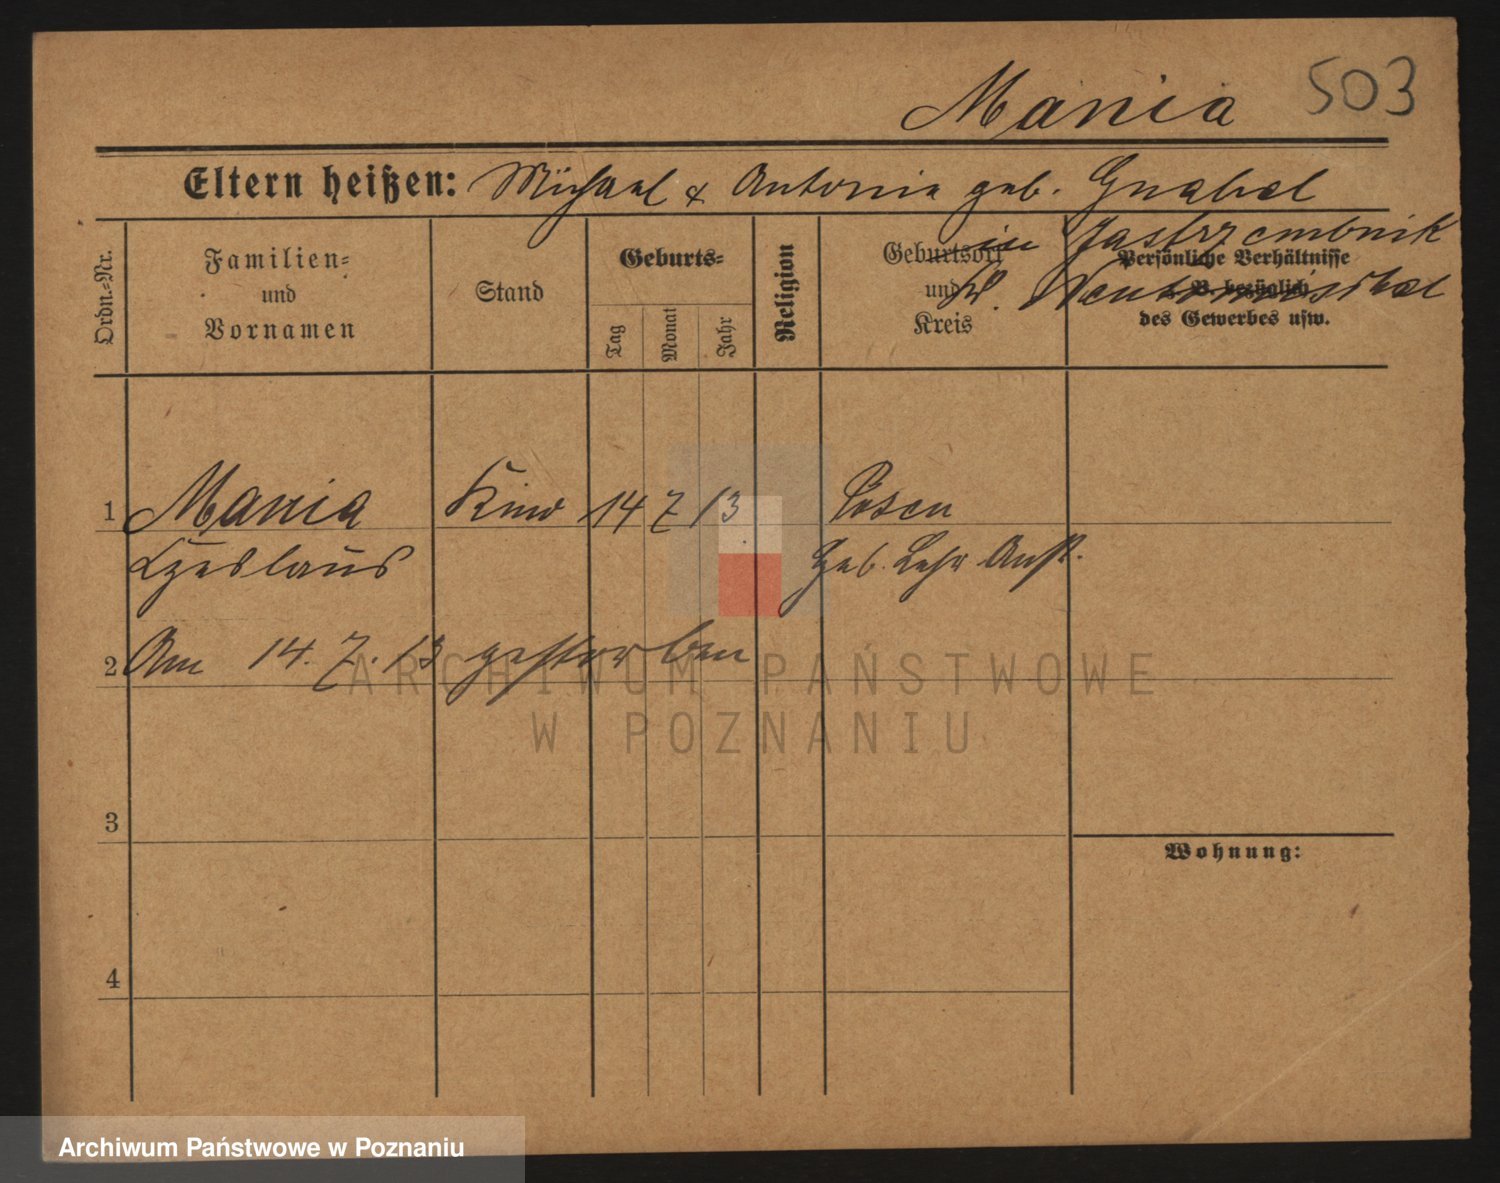 Mania 503
Eltern heißen: Michael & Antonie geb. Gnabel
in Jastrzembnik
Kr. Neutomischel
Ordn.-Nr.
Familien-
und
Vornamen
Stand
Geburts-
Tag
Monat
Jahr
Religion
Geburtsort
und
Kreis
Persönliche Verhältnisse
z. B. bezüglich
des Gewerbes usw.
1 Mania Kind 14 7 13 Posen
Czeslaus Geb. Lehr Anst.
2 Am 14. 7. 13 gestorben
3
4
Wohnung:
ARCHIWUM PAŃSTWOWE
W POZNANIU
Archiwum Państwowe w Poznaniu